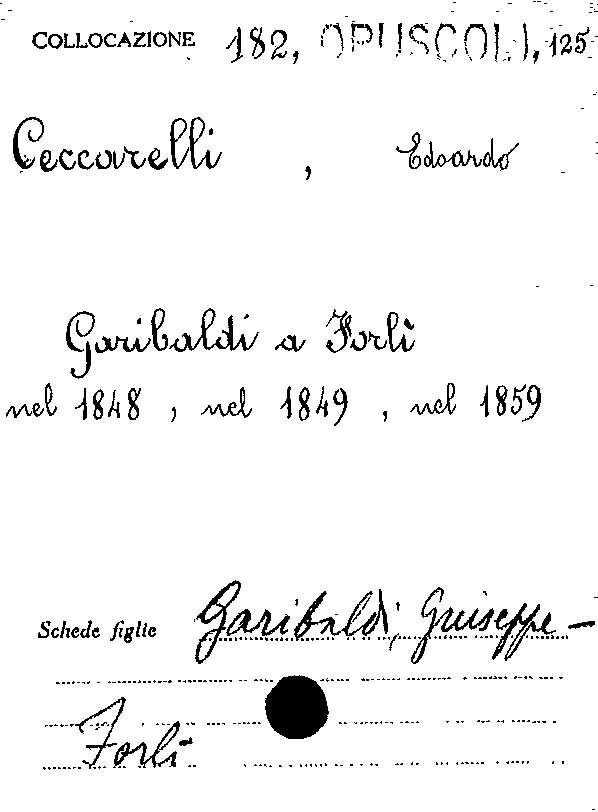 COLLOCAZIONE 182, OPUSCOLI, 125
Ceccarelli , Edoardo
Garibaldi a Forlì
nel 1848 , nel 1849 , nel 1859
Schede figlie Garibaldi, Giuseppe –
Forlì